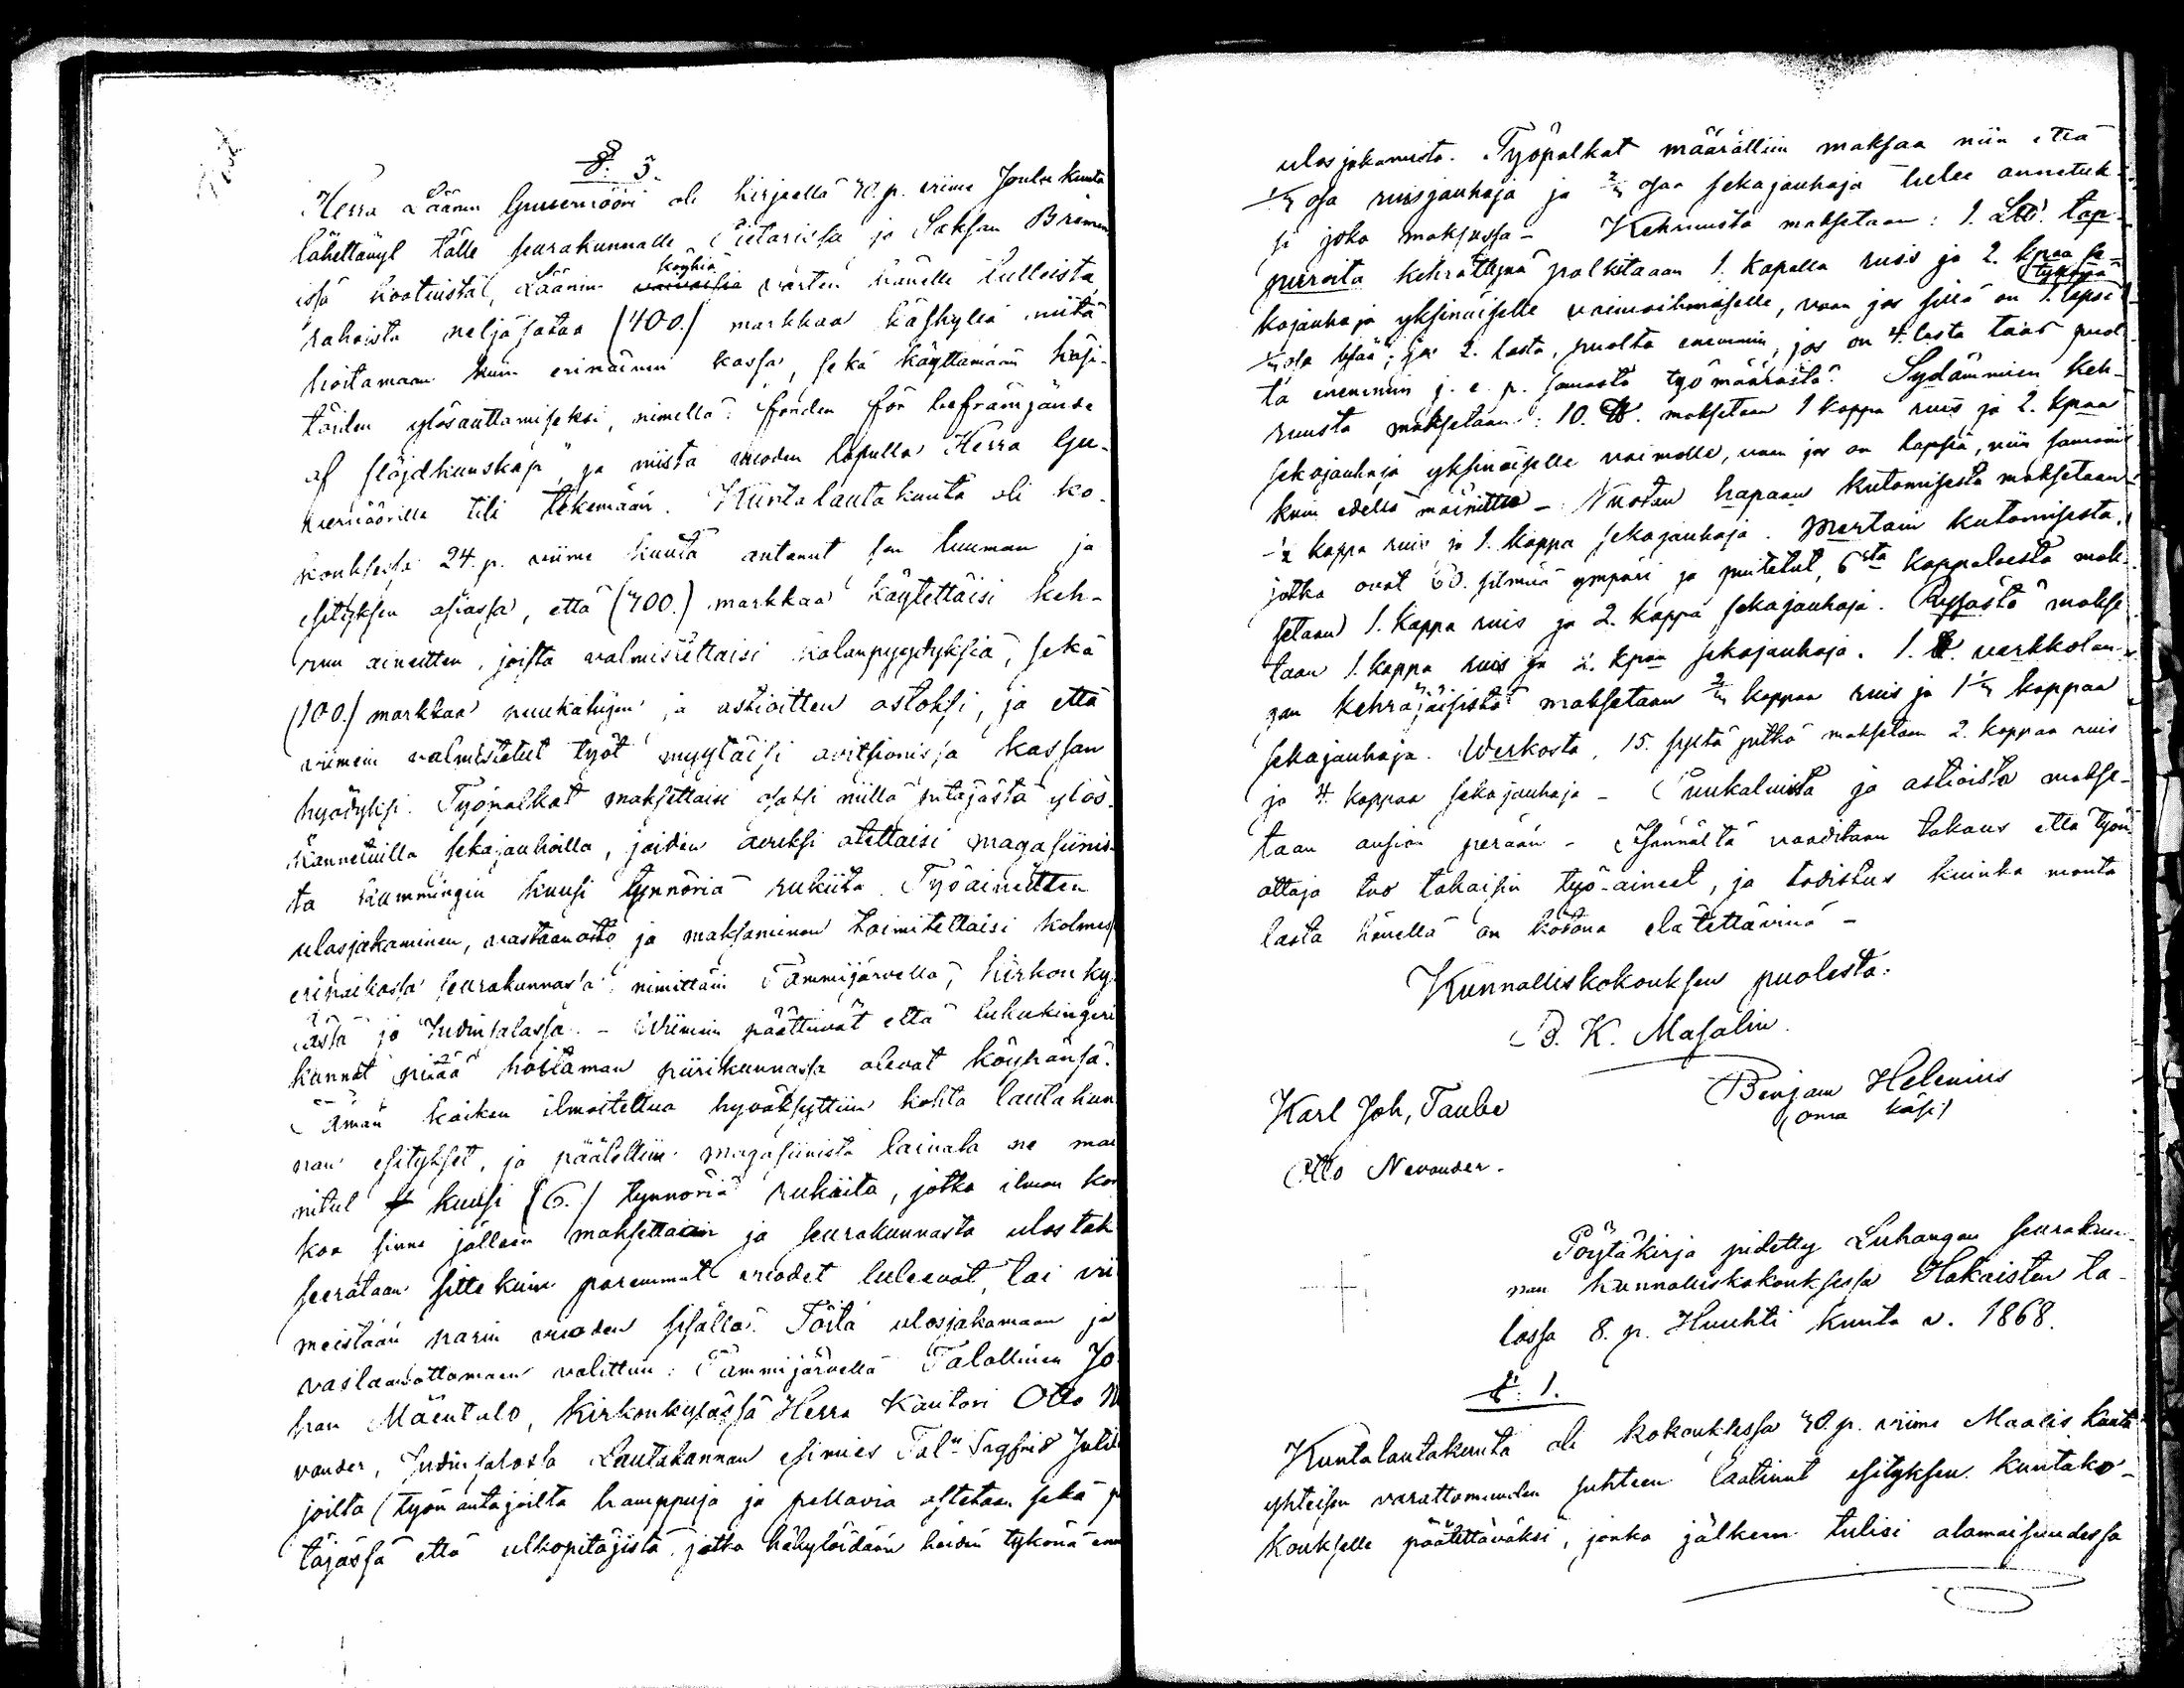 §. 5.
Herra Läänin Guvernööri oli kirjeellä 30. p. viime Joulu kuuta
lähettänyt tälle seurakunnalle Pietarissa ja Saksan Bremen
issä kootuista, Läänin vaivaisia köyhiä varten hänelle tulleista
rahoista neljäsataa (400.) markkaa käskyllä niitä
hoitamaan kuin erinäinen kassa, sekä käyttämään käsi-
töiden ylösauttamiseksi, nimellä: fonden för befrämjande
af slöjdkunskap" ja niistä vuoden lopulla Herra Gu-
vernöörille tili tekemään. Kuntalautakunta oli ko-
kouksessa 24. p. viime kuuta antanut sen luuman ja
esityksen asiassa, että (300.) markkaa käytettäisi keh-
ruu aineitten, joista valmistettaisi kalanpyydyksiä, sekä
(100.) markkaa puukalujen ja astioitten ostoksi, ja että
viimein valmistetut työt myytäisi avitsionissa kassan
hyödyksi. Työpalkat maksettaisi osaksi niillä pitäjästä ylös-
kannetuilla sekajauhoilla, joiden avuksi otettaisi magasiinis-
ta kummingin kuusi tynnöriä rukiita. Työaineitten
ulosjakaminen, vastaanotto ja maksaminen toimitettaisi kolmes
eripaikassa seurakunnassa: nimittäin Tammijärvellä, kirkonky-
lässä ja Judinsalossa. - Viimein päättivät että lukukingeri
kunnat pitää hoitaman piirikunnassa olevat köyhänsä.
Tämän kaiken ilmoitettua hyväksyttiin kohta lautakun
nan esitykset, ja päätettiin magasiinista lainata ne mai
nitut kuusi (6.) tynnöriä rukiita, jotka ilman kor
koa sinne jälleen maksettaan ja seurakunnasta ulostak
seerataan sitte kuin paremmat vuodet tuleevat, tai vii
meistään parin vuoden sisällä. Töitä ulosjakamaan ja
vastaanottamaan valittiin: Tammijärvellä Talollinen Jo
han Mäentalo, Kirkonkylässä Herra Kanttori Otto N
vander, Judinsalossa Lautakunnan esimies Tal:n Sigfrid Juti
joilta (työn antajoilta hamppuja ja pellavia ostetaan sekä p
täjässä että ulkopitäjistä, jotka häkylöidään heidän tykönä enn
ulosjakamista. Työpalkat määrättiin maksaa niin että
1/3 osa ruisjauhoja ja 2/3 osaa sekajauhoja tulee annetuk-
si joka maksussa - Kehruusta maksetaan: 1. L℔. tap-
puroita kehrättynä palkitaan 1. kapalla ruis ja 2. kpaa se-
kajauhoja yksinäiselle vaimoihmiselle, vaan jos sillä on 1. lapsi tykönä
1/3 osa lisää; jos 2. lasta, puolta enemmin, jos on 4. lasta taas puol-
ta enemmin j. e. p. samasta työmäärästä. Sydämmien keh-
ruusta maksetaan: 10. ℔. maksetaan 1 kappa ruis ja 2. kpaa
sekajauhoja yksinäiselle vaimolle, vaan jos on lapsia, niin samoin
kuin edellä mainittu - Nuotan hapaan kutomisesta maksetaan
1/2 kappa ruis ja 1. kappa sekajauhoja. Mertain kutomisesta,
jotka ovat 60. silmää ympäri ja puitetut, 6sta kappaleesta mak-
setaan 1. kappa ruis ja 2. kappa sekajauhoja. Rysästä makse
taan 1. kappa ruis ja 2. kpaa sekajauhoja. 1. ℔. verkkolan-
gan kehrääjäisistä maksetaan 2/3 kappaa ruis ja 1 1/3 kappaa
sekajauhoja. Verkosta, 15. syltä pitkä maksetaan 2. kappaa ruis
ja 4. kappaa sekajauhoja - Puukaluista ja astioista makse-
taan ansion perään - Isännältä vaaditaan takaus että työn
ottaja tuo takaisin työ-aineet, ja todistus kuinka monta
lasta hänellä on kotona elätettävinä -
Kunnalliskokouksen puolesta:
B. K. Masalin.
Karl Joh, Taube
Benjam Helenius
(oma käsi)
Otto Nevander.
Pöytäkirja pidetty Luhangan seurakun-
nan kunnalliskokouksessa Hakaisten ta-
lossa 8. p. Huuhti kuuta v. 1868.
§. 1.
Kuntalautakunta oli kokouksessa 30. p. viime Maalis kuuta
yhteisen varattomuuden suhteen laatinut esityksen kuntako-
koukselle päätettäväksi, jonka jälkeen tulisi alamaisuudessa